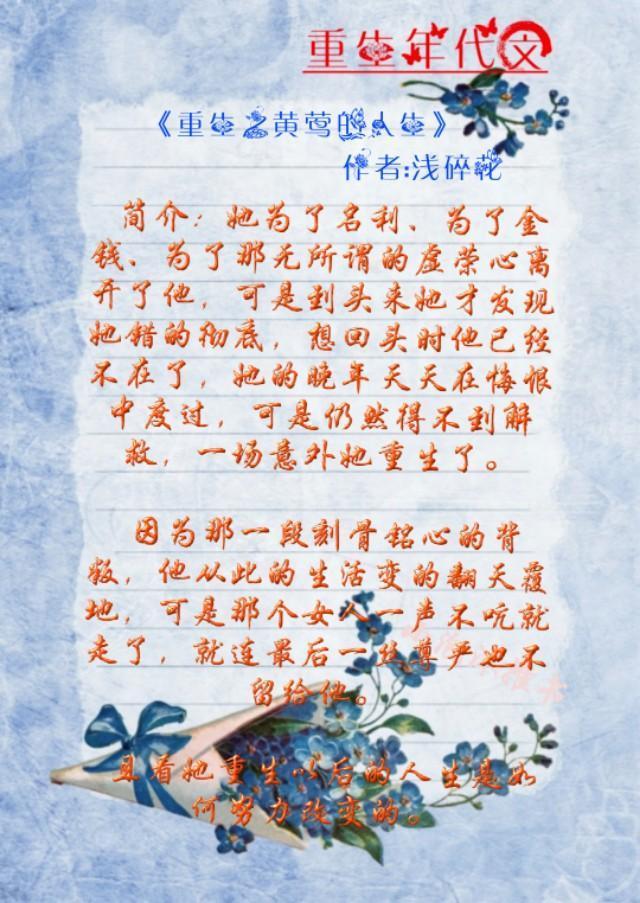 重生年代文
《重生之黄莺的人生》
作者:浅碎花
简介：她为了名利、为了金
钱、为了那无所谓的虚荣心离
开了他，可是到头来她才发现
她错的彻底，想回头时他已经
不在了，她的晚年天天在悔恨
中度过，可是仍然得不到解
救，一场意外她重生了。
因为那一段刻骨铭心的背
叛，他从此的生活变的翻天覆
地，可是那个女人一声不吭就
走了，就连最后一丝尊严也不
留给他。
且看她重生以后的人生是如
何努力改变的。